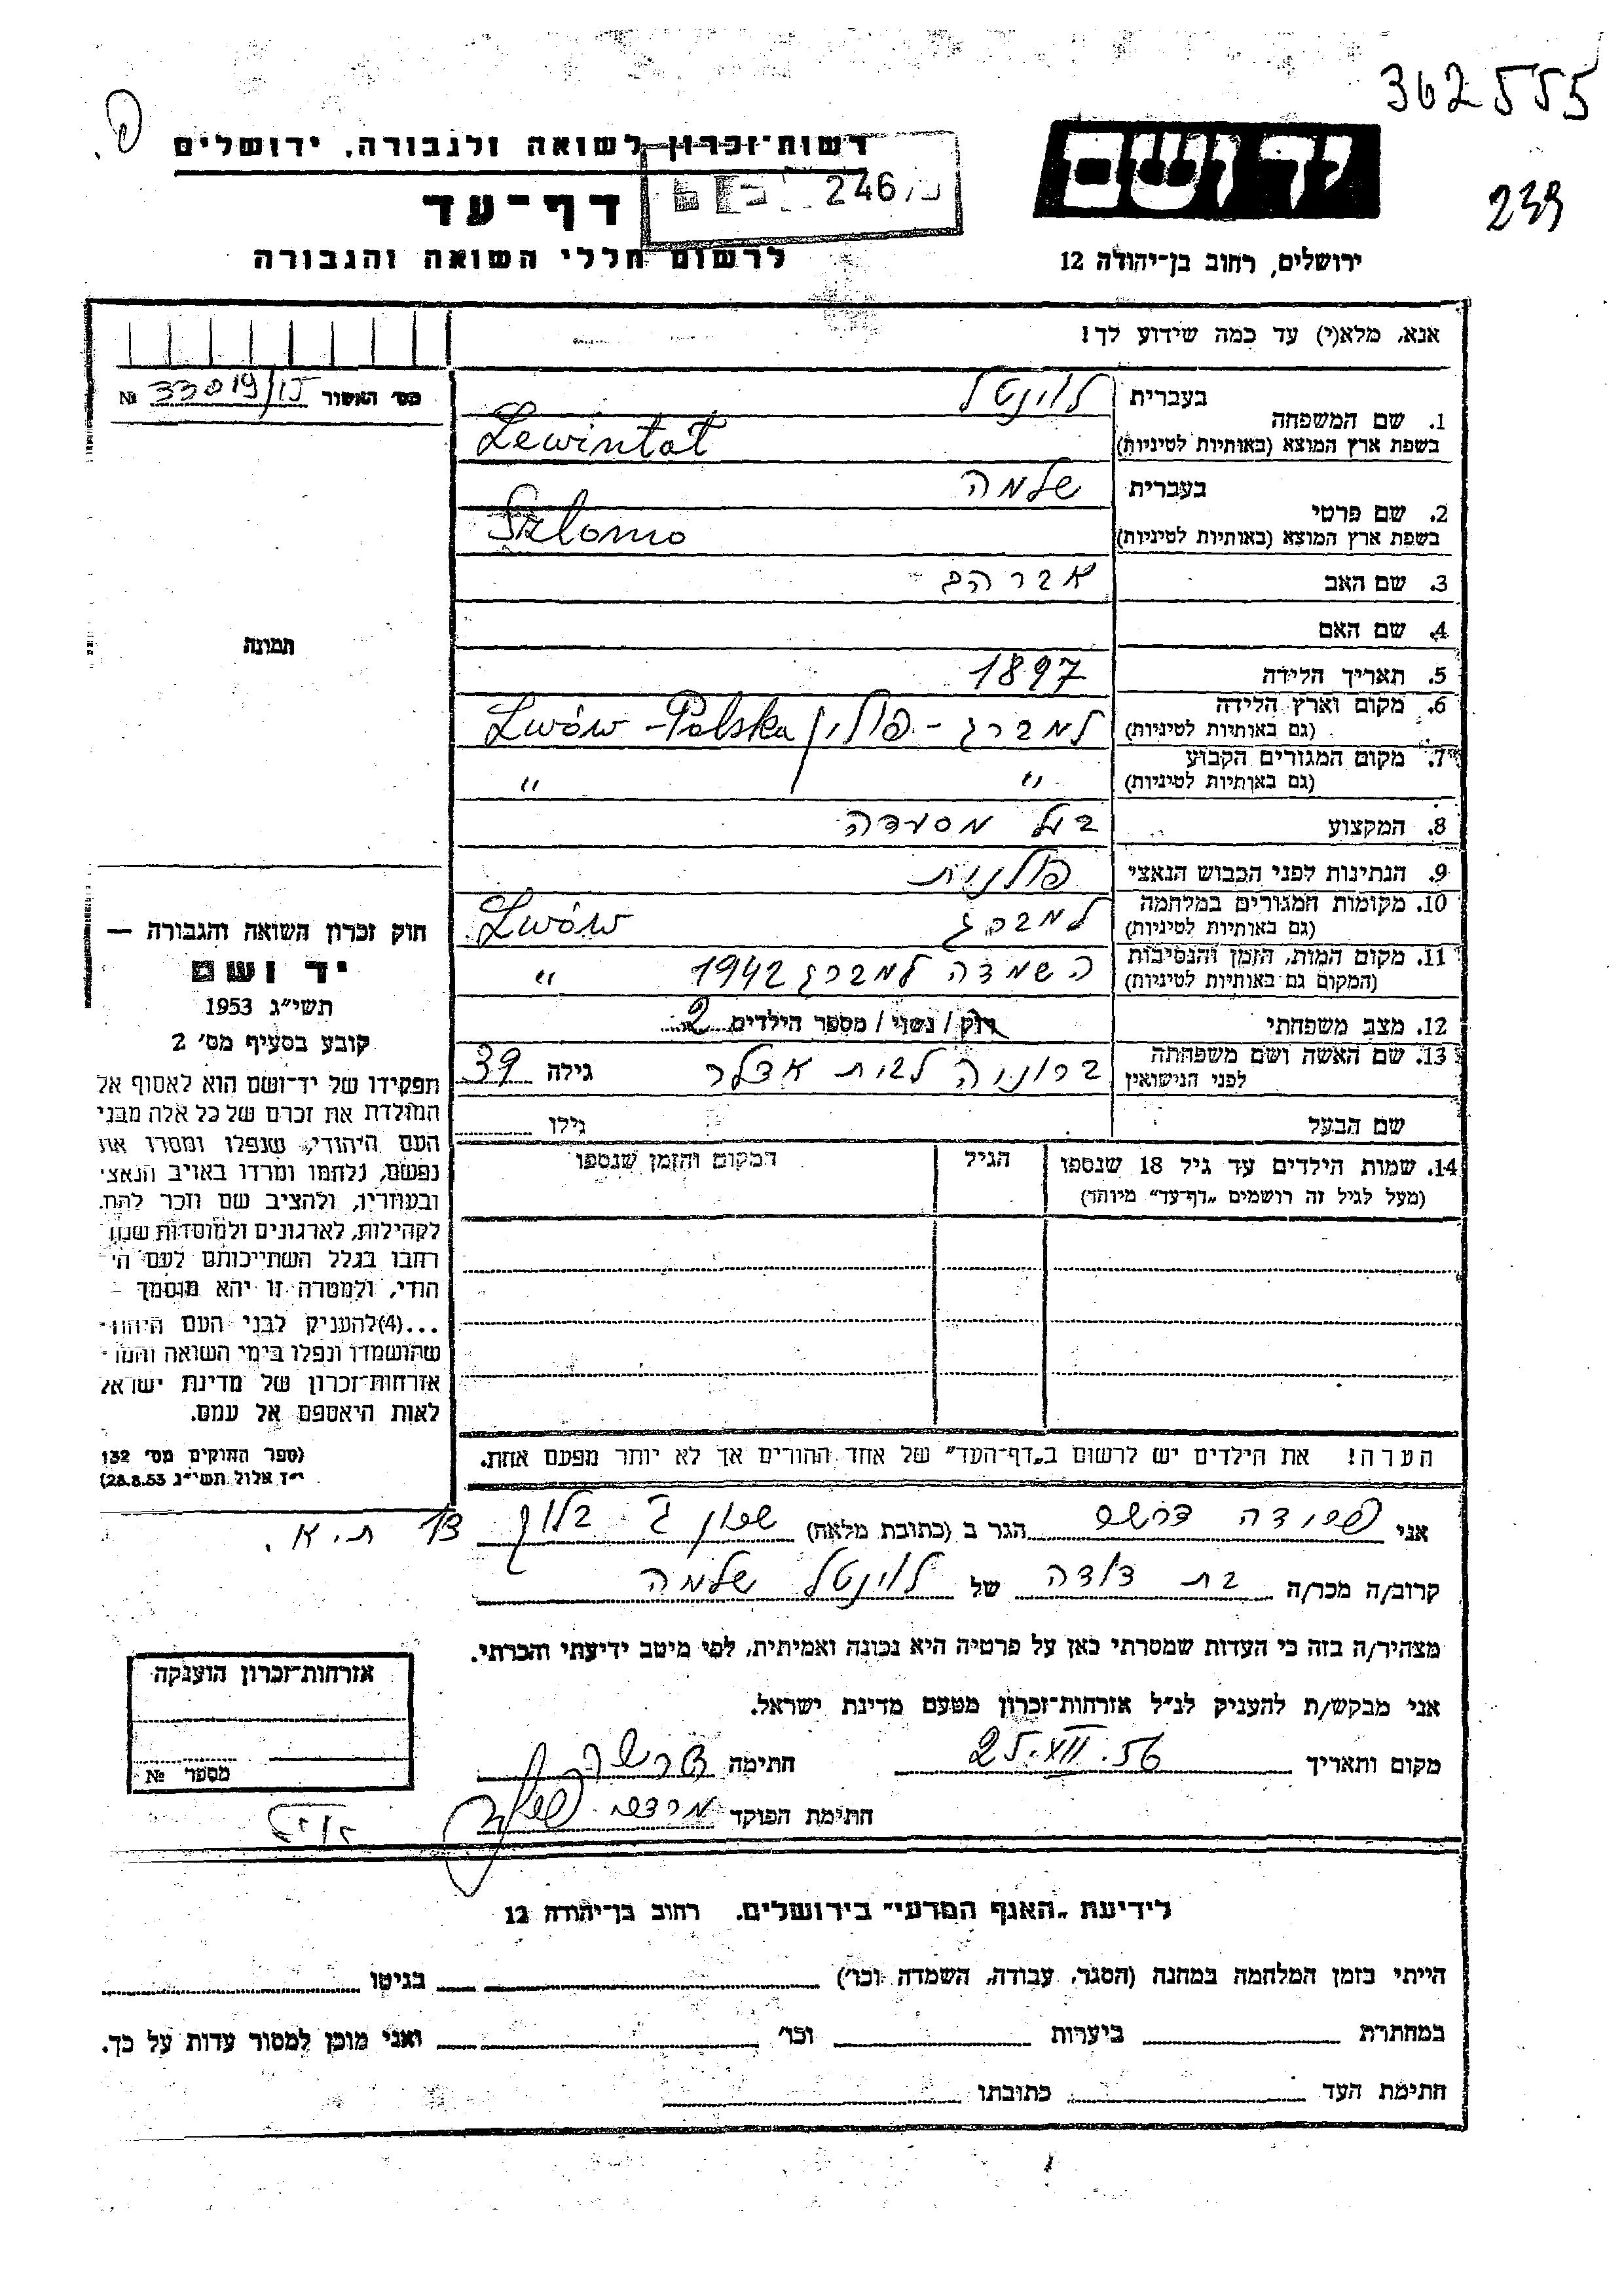 362555
239
יד ושם
ירושלים, רחוב בן־יהודה 12
רשות־זכרון לשואה ולגבורה, ירושלים
דף־עד
לרשום חללי השואה והגבורה
246
אנא, מלא(י) עד כמה שידוע לך!
מס׳ האשור № 33019/
1. שם המשפחה בעברית לוינטל
בשפת ארץ המוצא (באותיות לטיניות) Lewintal
2. שם פרטי בעברית שלמה
בשפת ארץ המוצא (באותיות לטיניות) Szlomo
3. שם האב אברהם
4. שם האם
5. תאריך הלידה 1897
6. מקום וארץ הלידה (גם באותיות לטיניות) למברג - פולין / Lwów - Polska
7. מקום המגורים הקבוע (גם באותיות לטיניות) " "
8. המקצוע בעל מסעדה
9. הנתינות לפני הכבוש הנאצי פולנית
10. מקומות המגורים במלחמה (גם באותיות לטיניות) למברג Lwów
11. מקום המות, הזמן והנסיבות (המקום גם באותיות לטיניות) השמדה למברג 1942 "
12. מצב משפחתי רוק / נשוי / מספר הילדים 2
13. שם האשה ושם משפחתה לפני הנישואין ברוניה לבית אדלר גילה 39
שם הבעל גילו
14. שמות הילדים עד גיל 18 שנספו (מעל לגיל זה רושמים „דף־עד" מיוחד) הגיל המקום והזמן שנספו
הערה! את הילדים יש לרשום ב„דף־העד" של אחד ההורים אך לא יותר מפעם אחת.
תמונה
חוק זכרון השואה והגבורה —
יד ושם
תשי״ג 1953
קובע בסעיף מס׳ 2
תפקידו של יד־ושם הוא לאסוף אל
המולדת את זכרם של כל אלה מבני
העם היהודי, שנפלו ומסרו את
נפשם, נלחמו ומרדו באויב הנאצי
ובעוזריו, ולהציב שם וזכר להם,
לקהילות, לארגונים ולמוסדות שנח־
רחבו בגלל השתייכותם לעם הי־
הודי, ולמטרה זו יהא מוסמך –
...(4) להעניק לבני העם היהודי
שהושמדו ונפלו בימי השואה והמרי
אזרחות־זכרון של מדינת ישראל
לאות היאספם אל עמם.
(ספר החוקים מס׳ 132
י״ז אלול תשי״ג 28.8.53)
אני הגר ב (כתובת מלאה) 13 ת.א.
קרוב/ה מכר/ה בת דודה של לוינטל שלמה
מצהיר/ה בזה כי העדות שמסרתי כאן על פרטיה היא נכונה ואמיתית, לפי מיטב ידיעתי והכרתי.
אני מבקש/ת להעניק לנ״ל אזרחות־זכרון מטעם מדינת ישראל.
מקום ותאריך 25.XII.56 חתימה
חתימת הפוקד
אזרחות־זכרון הוענקה
מספר №
לידיעת „האגף המדעי" בירושלים, רחוב בן־יהודה 12
הייתי בזמן המלחמה במחנה (הסגר, עבודה, השמדה וכו׳) בגיטו
במחתרת ביערות וכו׳ ואני מוכן למסור עדות על כך.
חתימת העד כתובתו